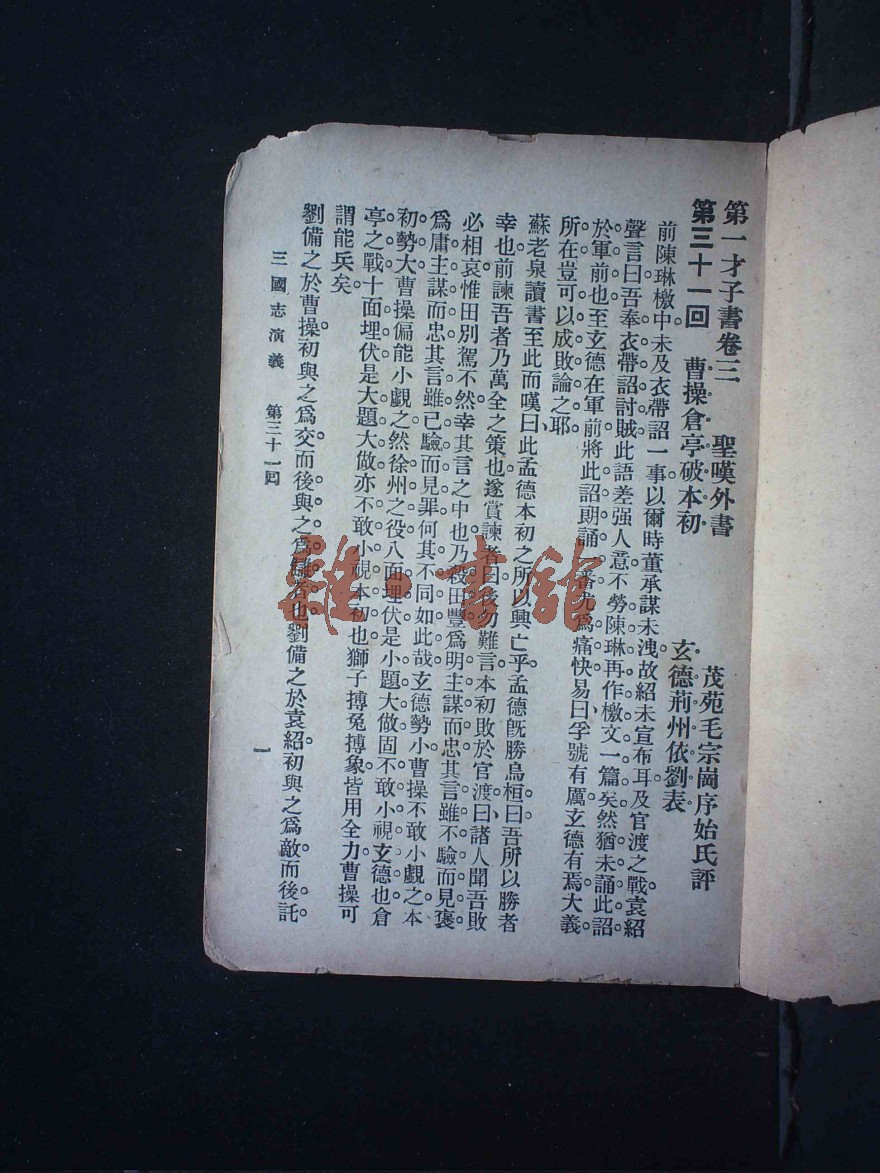 第一才子書卷三 聖嘆外書 茂苑毛宗崗序始氏評
第三十一回 曹操倉亭破本初 玄德荊州依劉表
前陳琳檄中未及衣帶詔一事以爾時董承謀未洩故紹未宣布耳及官渡之戰袁紹
聲言曰吾奉衣帶詔討賊此語差强人意不勞陳琳再作檄文一篇矣然猶未誦此詔
於軍前也至玄德在軍前將此詔朗誦一番尤爲痛快易曰孚號有厲玄德有焉大義
所在豈可以成敗論之耶
蘇老泉讀書至此而嘆曰此孟德本初之所以興亡乎孟德旣勝烏桓曰吾所以勝者
幸也前諫吾者乃萬全之策也遂賞諫者曰後勿難言本初敗於官渡曰諸人聞吾敗
必相哀惟田別駕不然幸其言之中也乃殺田豐爲明主謀而忠其言雖不驗而見褒
爲庸主謀而忠其言雖已驗而見罪何其不同如此哉玄德勢小曹操不敢小覷之本
初勢大曹操偏能小覷之然徐州之役八面埋伏是小題大做固不敢小視玄德也倉
亭之戰十面埋伏是大題大做亦不敢小視本初也獅子搏兔搏象皆用全力曹操可
謂能兵矣
劉備之於曹操初與之爲交而後與之爲讎者也劉備之於袁紹初與之爲敵而後託
三國志演義 第三十一回 一
雜·書館